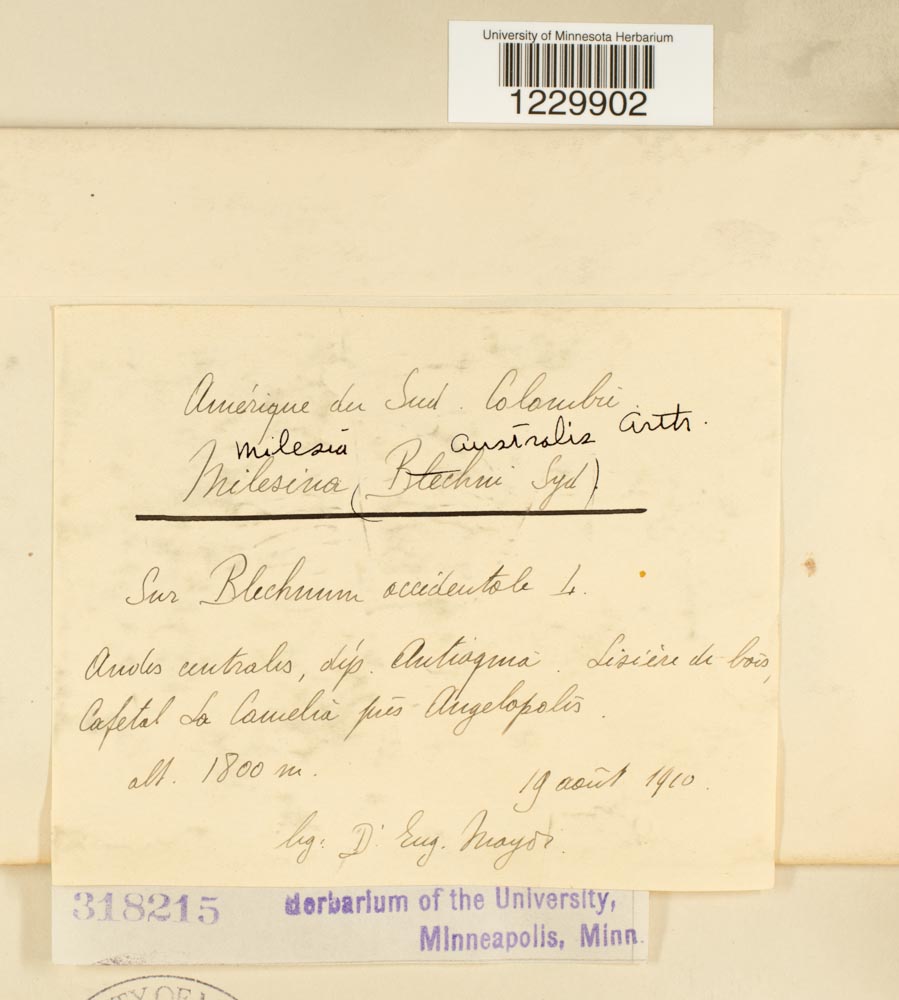 University of Minnesota Herbarium
1229902
Amérique du Sud. Colombie
Milesia australis Arth.
Milesina (Blechni Syd)
Sur Blechnum occidentale L.
Andes centrales, dép. Antioquia. Lisière de bois,
Cafetal La Camelia près Angelopolis.
alt. 1800 m.
19 août 1910.
leg: Dr Eug. Mayor.
318215 Herbarium of the University,
Minneapolis, Minn.